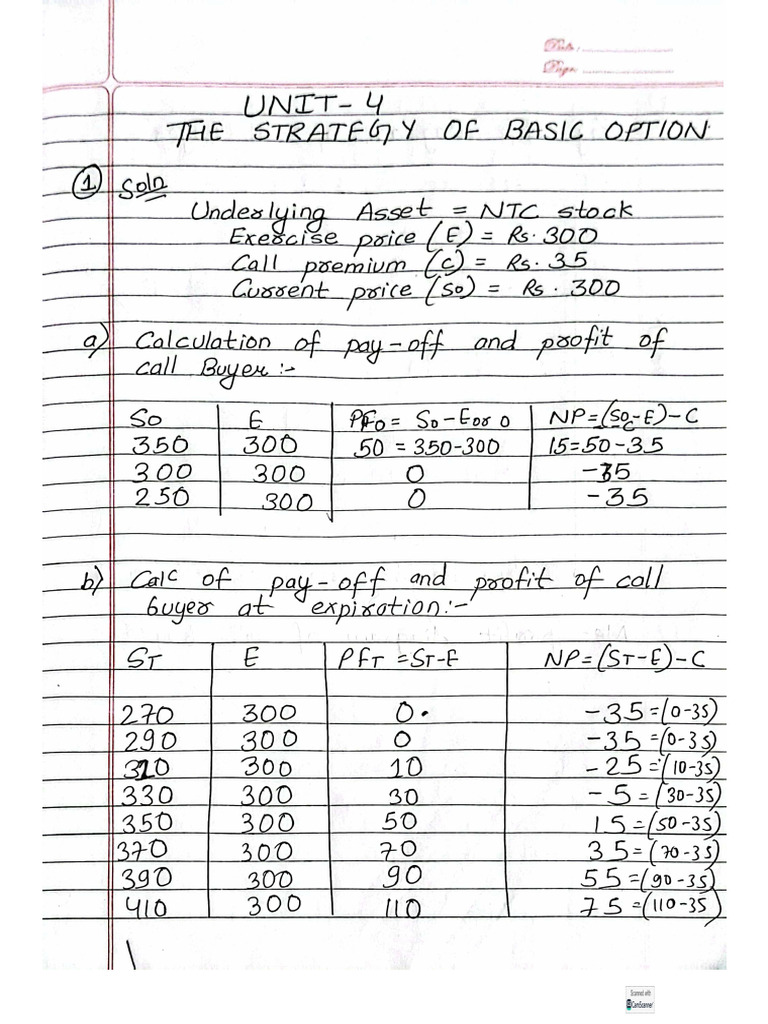 Date:
Page:
UNIT-4
THE STRATEGY OF BASIC OPTION
① Soln
Underlying Asset = NTC stock
Exercise price (E) = Rs. 300
Call premium (C) = Rs. 35
Current price (So) = Rs. 300
a) Calculation of pay-off and profit of
call Buyer:-
So E PFo = So-E or 0 NP=(So-E)-C
350 300 50 = 350-300 15=50-35
300 300 0 -35
250 300 0 -35
b) Calc of pay-off and profit of call
buyer at expiration:-
ST E PFT = ST-E NP=(ST-E)-C
270 300 0. -35=(0-35)
290 300 0 -35=(0-35)
310 300 10 -25=(10-35)
330 300 30 -5=(30-35)
350 300 50 15=(50-35)
370 300 70 35=(70-35)
390 300 90 55=(90-35)
410 300 110 75=(110-35)
Scanned with
CamScanner